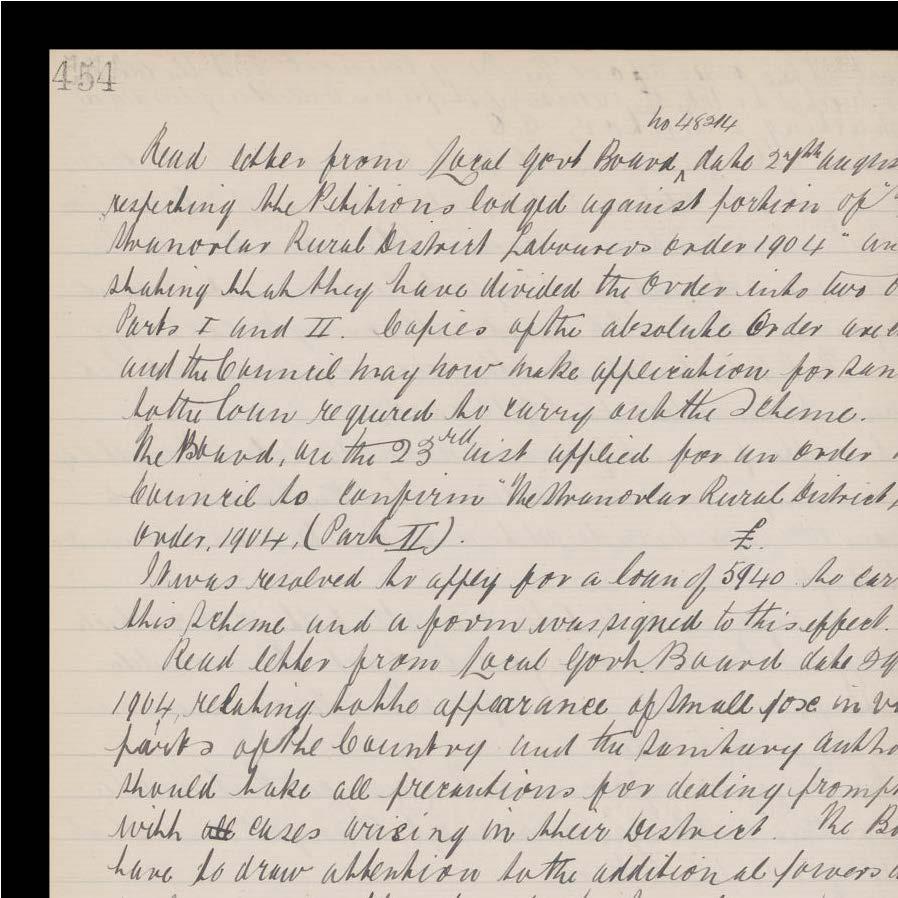 454
no 48214
Read letter from Local Govt Board, date
respecting the Petitions lodged against portion of "
Stranorlar Rural District Labourers Order 1904" an
stating that they have divided the Order into two
Parts I and II. Copies of the absolute Order are
and the Council may now make application for san
to the loan required to carry out the Scheme.
The Board, on the 23rd inst applied for an order
Council to confirm "The Stranorlar Rural District
Order, 1904, (Part II).
£
It was resolved to apply for a loan of 5940 to car
this scheme and a form was signed to this effect.
Read letter from Local Govt. Board date
1904, relating to the appearance of Small pox in va
parts of the Country and the Sanitary Autho
should take all precautions for dealing promp
with all cases arising in their District. The Bo
have to draw attention to the additional powers